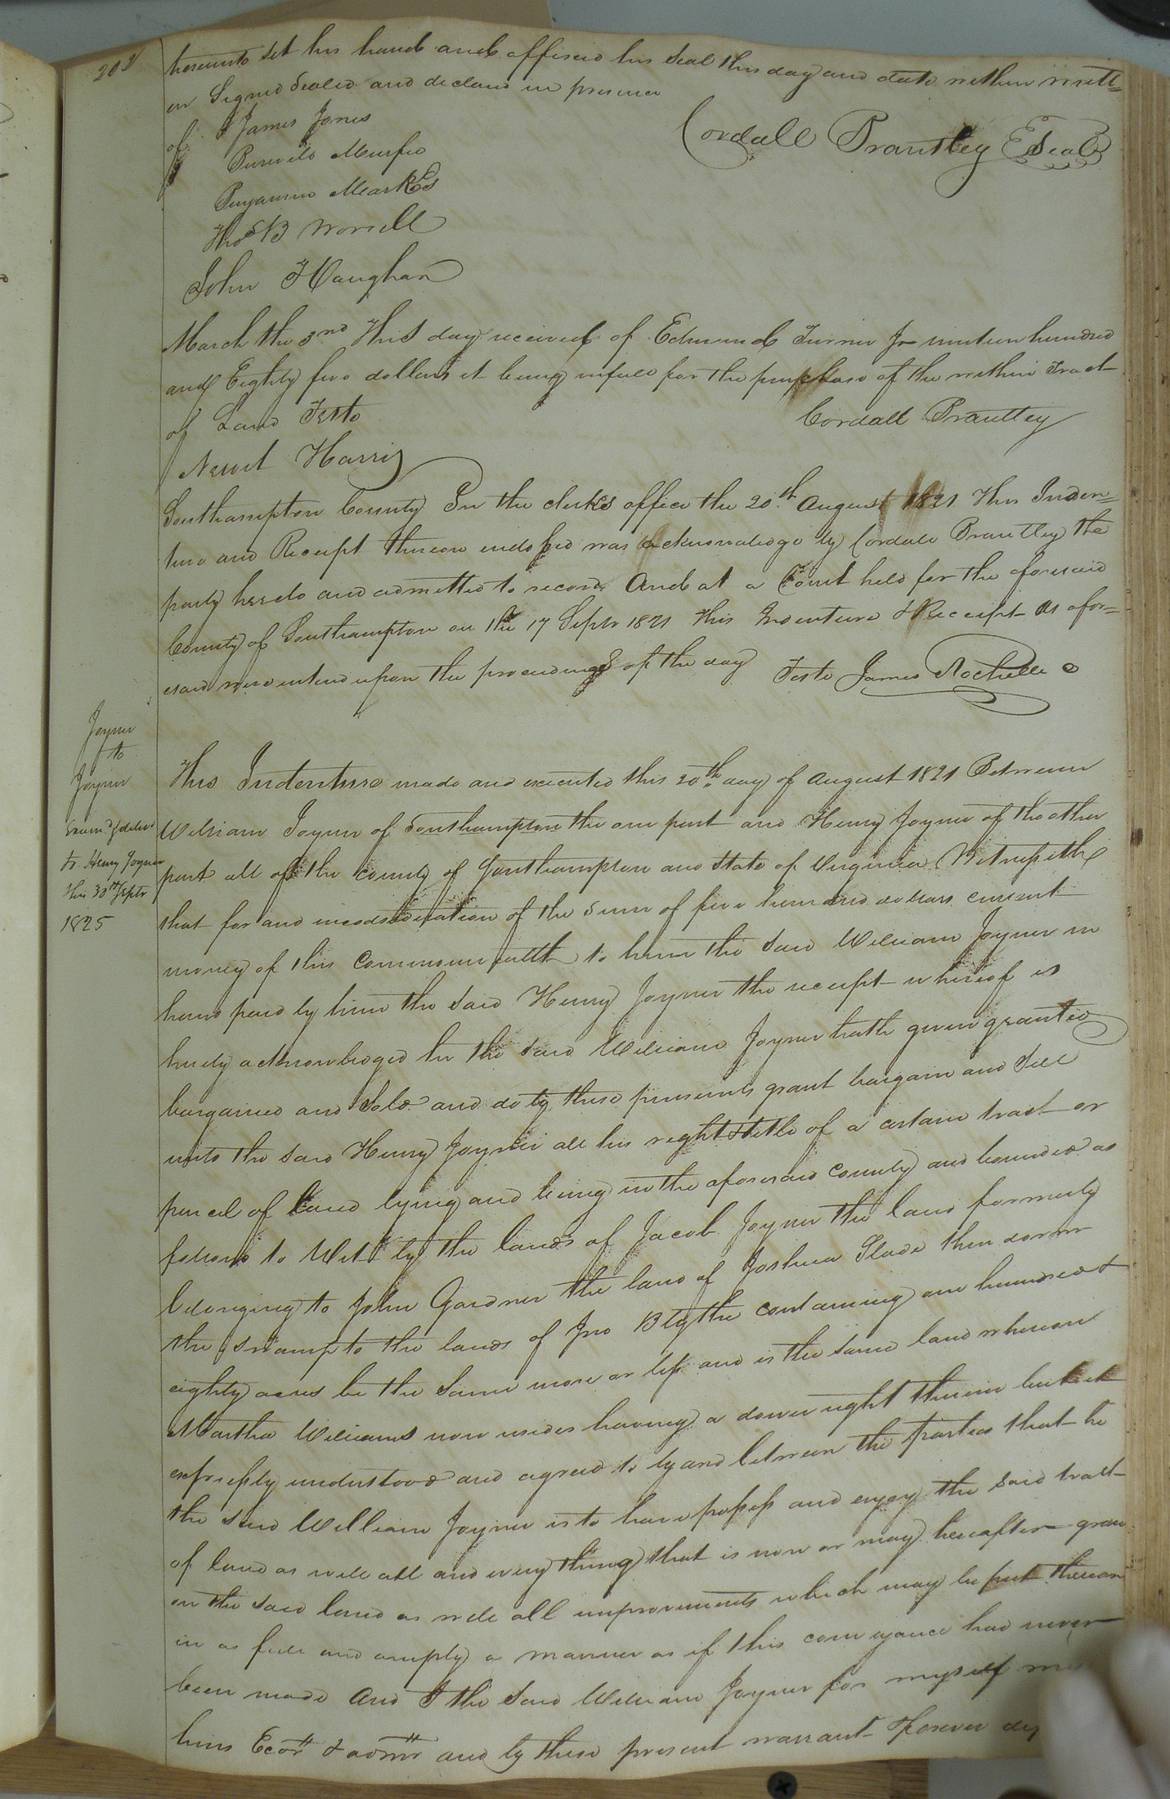 hereunto set his hand and affixed his seal this day and date within writt=
en Signed Sealed and declared in presence
of James Jones
Cordall Brantley Seal
Murfee
Benjamin Markes
Thos B Worrell
John Vaughan
March the 3rd This day received of Edmund Turner Jr nineteen hundred
and Eighty five dollars it being in full for the purchase of the within Tract
of Land Teste
Cordall Brantley
Newit Harris
Southampton County In the clerks office the 20th August 1821 This Inden=
ture and Receipt thereon endorsed was acknowledge by Cordall Brantley the
party hereto and admitted to record And at a Court held for the aforesaid
County of Southampton on the 17 Septr 1821 this Indenture & Receipt as afor=
esaid were entered upon the proceedings of the day Teste James Rochelle c
Joyner
to
Joyner
Examd & delivd
to Henry Joyner
this 30th Septr
1825
This Indenture made and executed this 20th day of August 1821 Between
William Joyner of Southampton the one part and Henry Joyner of the other
part all of the county of Southampton and State of Virginia Witnesseth
that for and in consideration of the Sum of five hundred dollars current
money of this commonwealth to him the said William Joyner in
hand paid by him the said Henry Joyner the receipt whereof is
hereby acknowledged he the said William Joyner hath given granted
bargained and Sold and do by these presents grant bargain and Sell
unto the said Henry Joyner all his right & title of a certain tract or
parcel of Land lying and being in the aforesaid County and bounded as
follows to Wit by the lands of Jacob Joyner the land formerly
belonging to John Gardner the land of Joshua Slade then down
the swamp to the lands of Jno Blythe containing one hundred &
eighty acres be the same more or less and is the same land whereon
Martha Williams now resides having a dower right therein but it
expressly understood and agreed to by and between the parties that he
the said William Joyner is to have possess and enjoy the said tract
of land as well all and every thing that is now or may hereafter grow
on the said land as well all improvements which may be put thereon
in as full and amply a manner as if this conveyance had never
been made And I the said William Joyner for myself my
heirs Ecors & admr and by these present warrant & forever